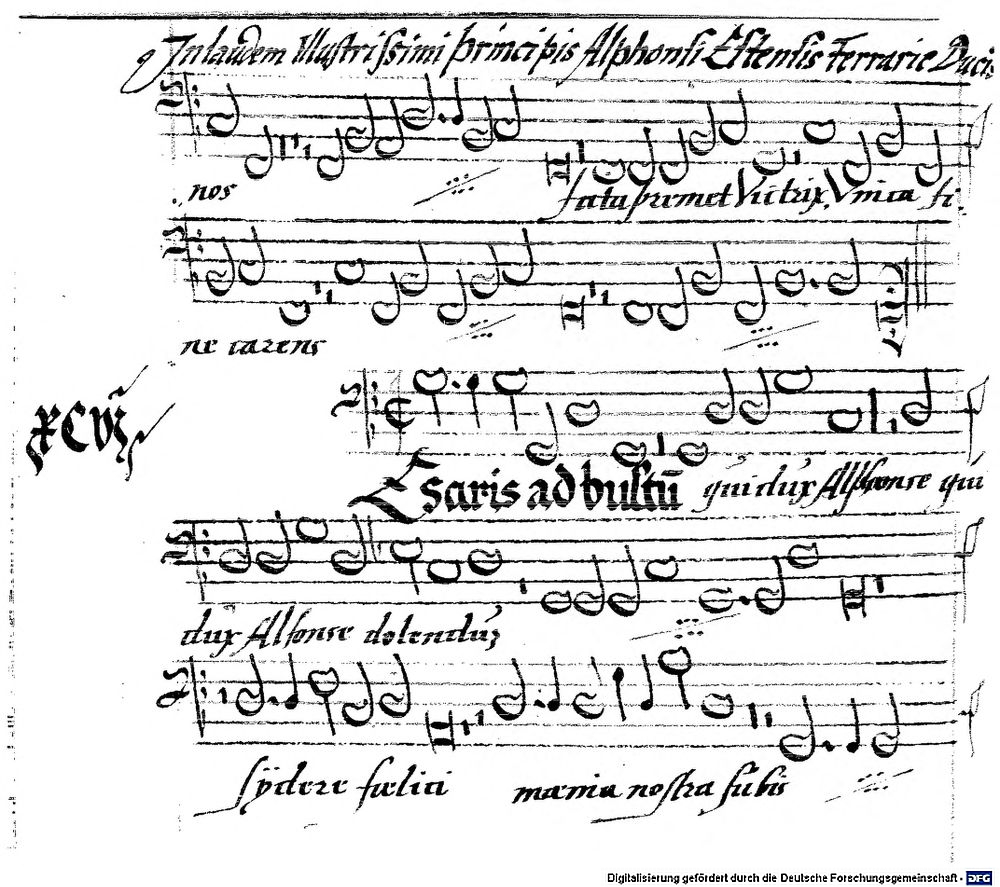 In laudem Illustrissimi principis Alphonsi Estensis Ferrarie Ducis
nos fata premet Victrix, Vnica fi-
ne carens
XCVIJ
Cesaris ad bustũ qui dux Alfonse qui
dux Alfonse dolendus
sydere fœlici mœnia nostra subis
Digitalisierung gefördert durch die Deutsche Forschungsgemeinschaft - DFG